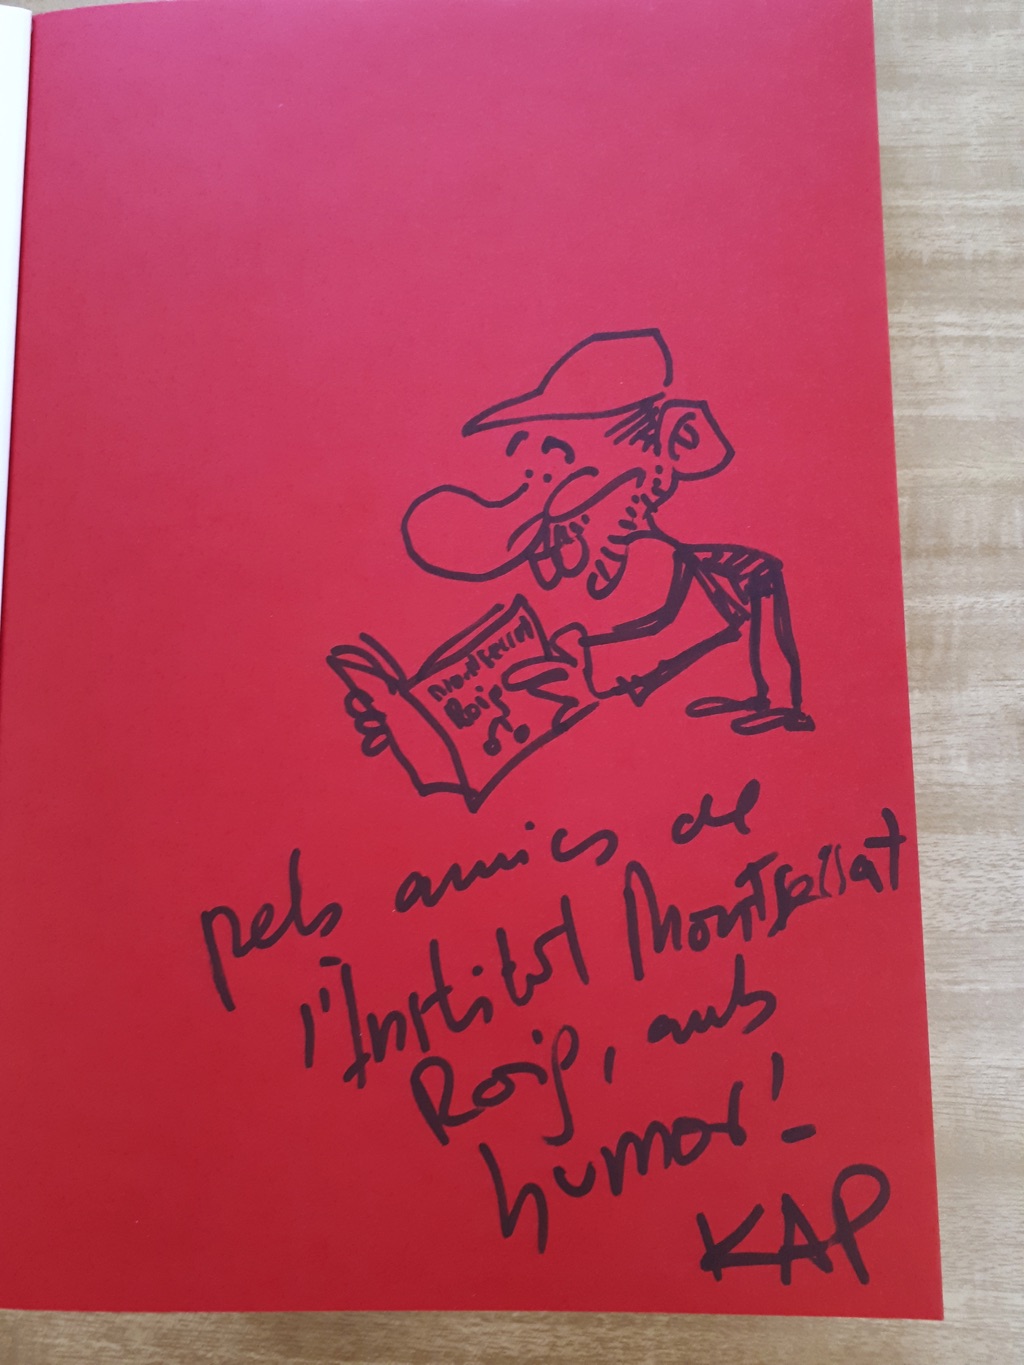 Montserrat
Roig
pels amics de
l'Institut Montserrat
Roig, amb
humor!
KAP